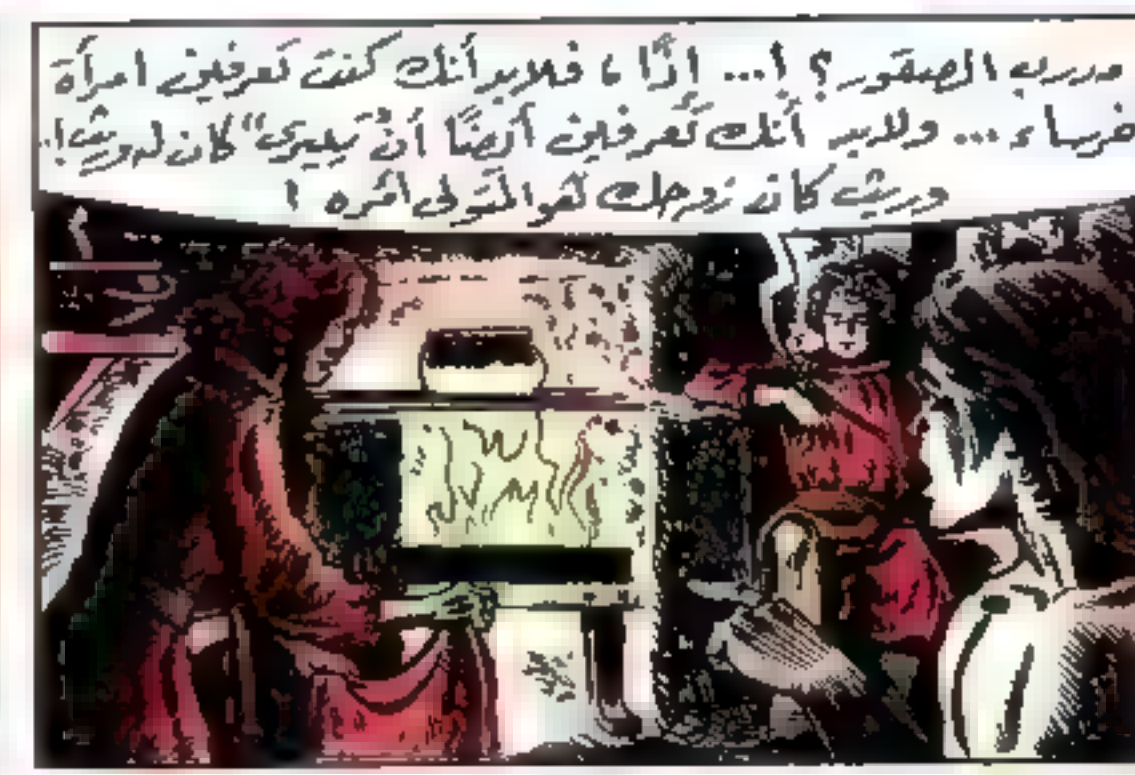 مدرب الصقور؟ !... إذًا، فلابد أنك كنت تعرفين امرأة
خرساء... ولابد أنك تعرفين أيضًا أنّ كان له وريث!..
وريث كان زوجك هو المتولى أمره !